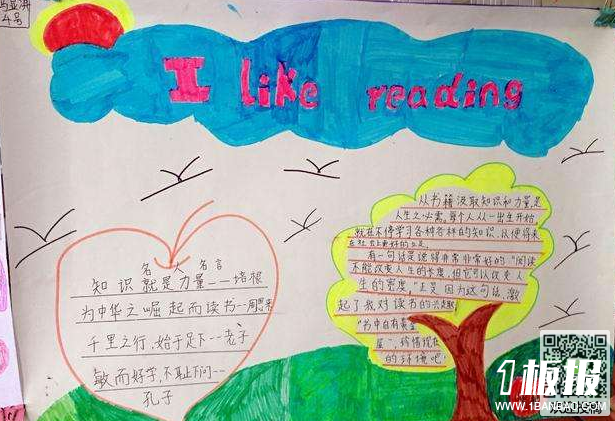 4号
I like reading
名人名言
知识就是力量——培根
为中华之崛起而读书——周恩来
千里之行,始于足下--老子
敏而好学,不耻下问--
孔子
从书籍汲取知识和力量是
人生之必需,每个人从一出生开始
就在不停学习各种各样的知识,以便将来
在社会上更好的立足.
有一句话是说得非常非常好的"阅读
不能改变人生的长度,但它可以改变人
生的密度,"正是因为这句话,激
起了我对读书的兴趣
"书中自有黄金
屋",珍惜现在
的环境吧
1板报
WWW.1BANBAO.COM